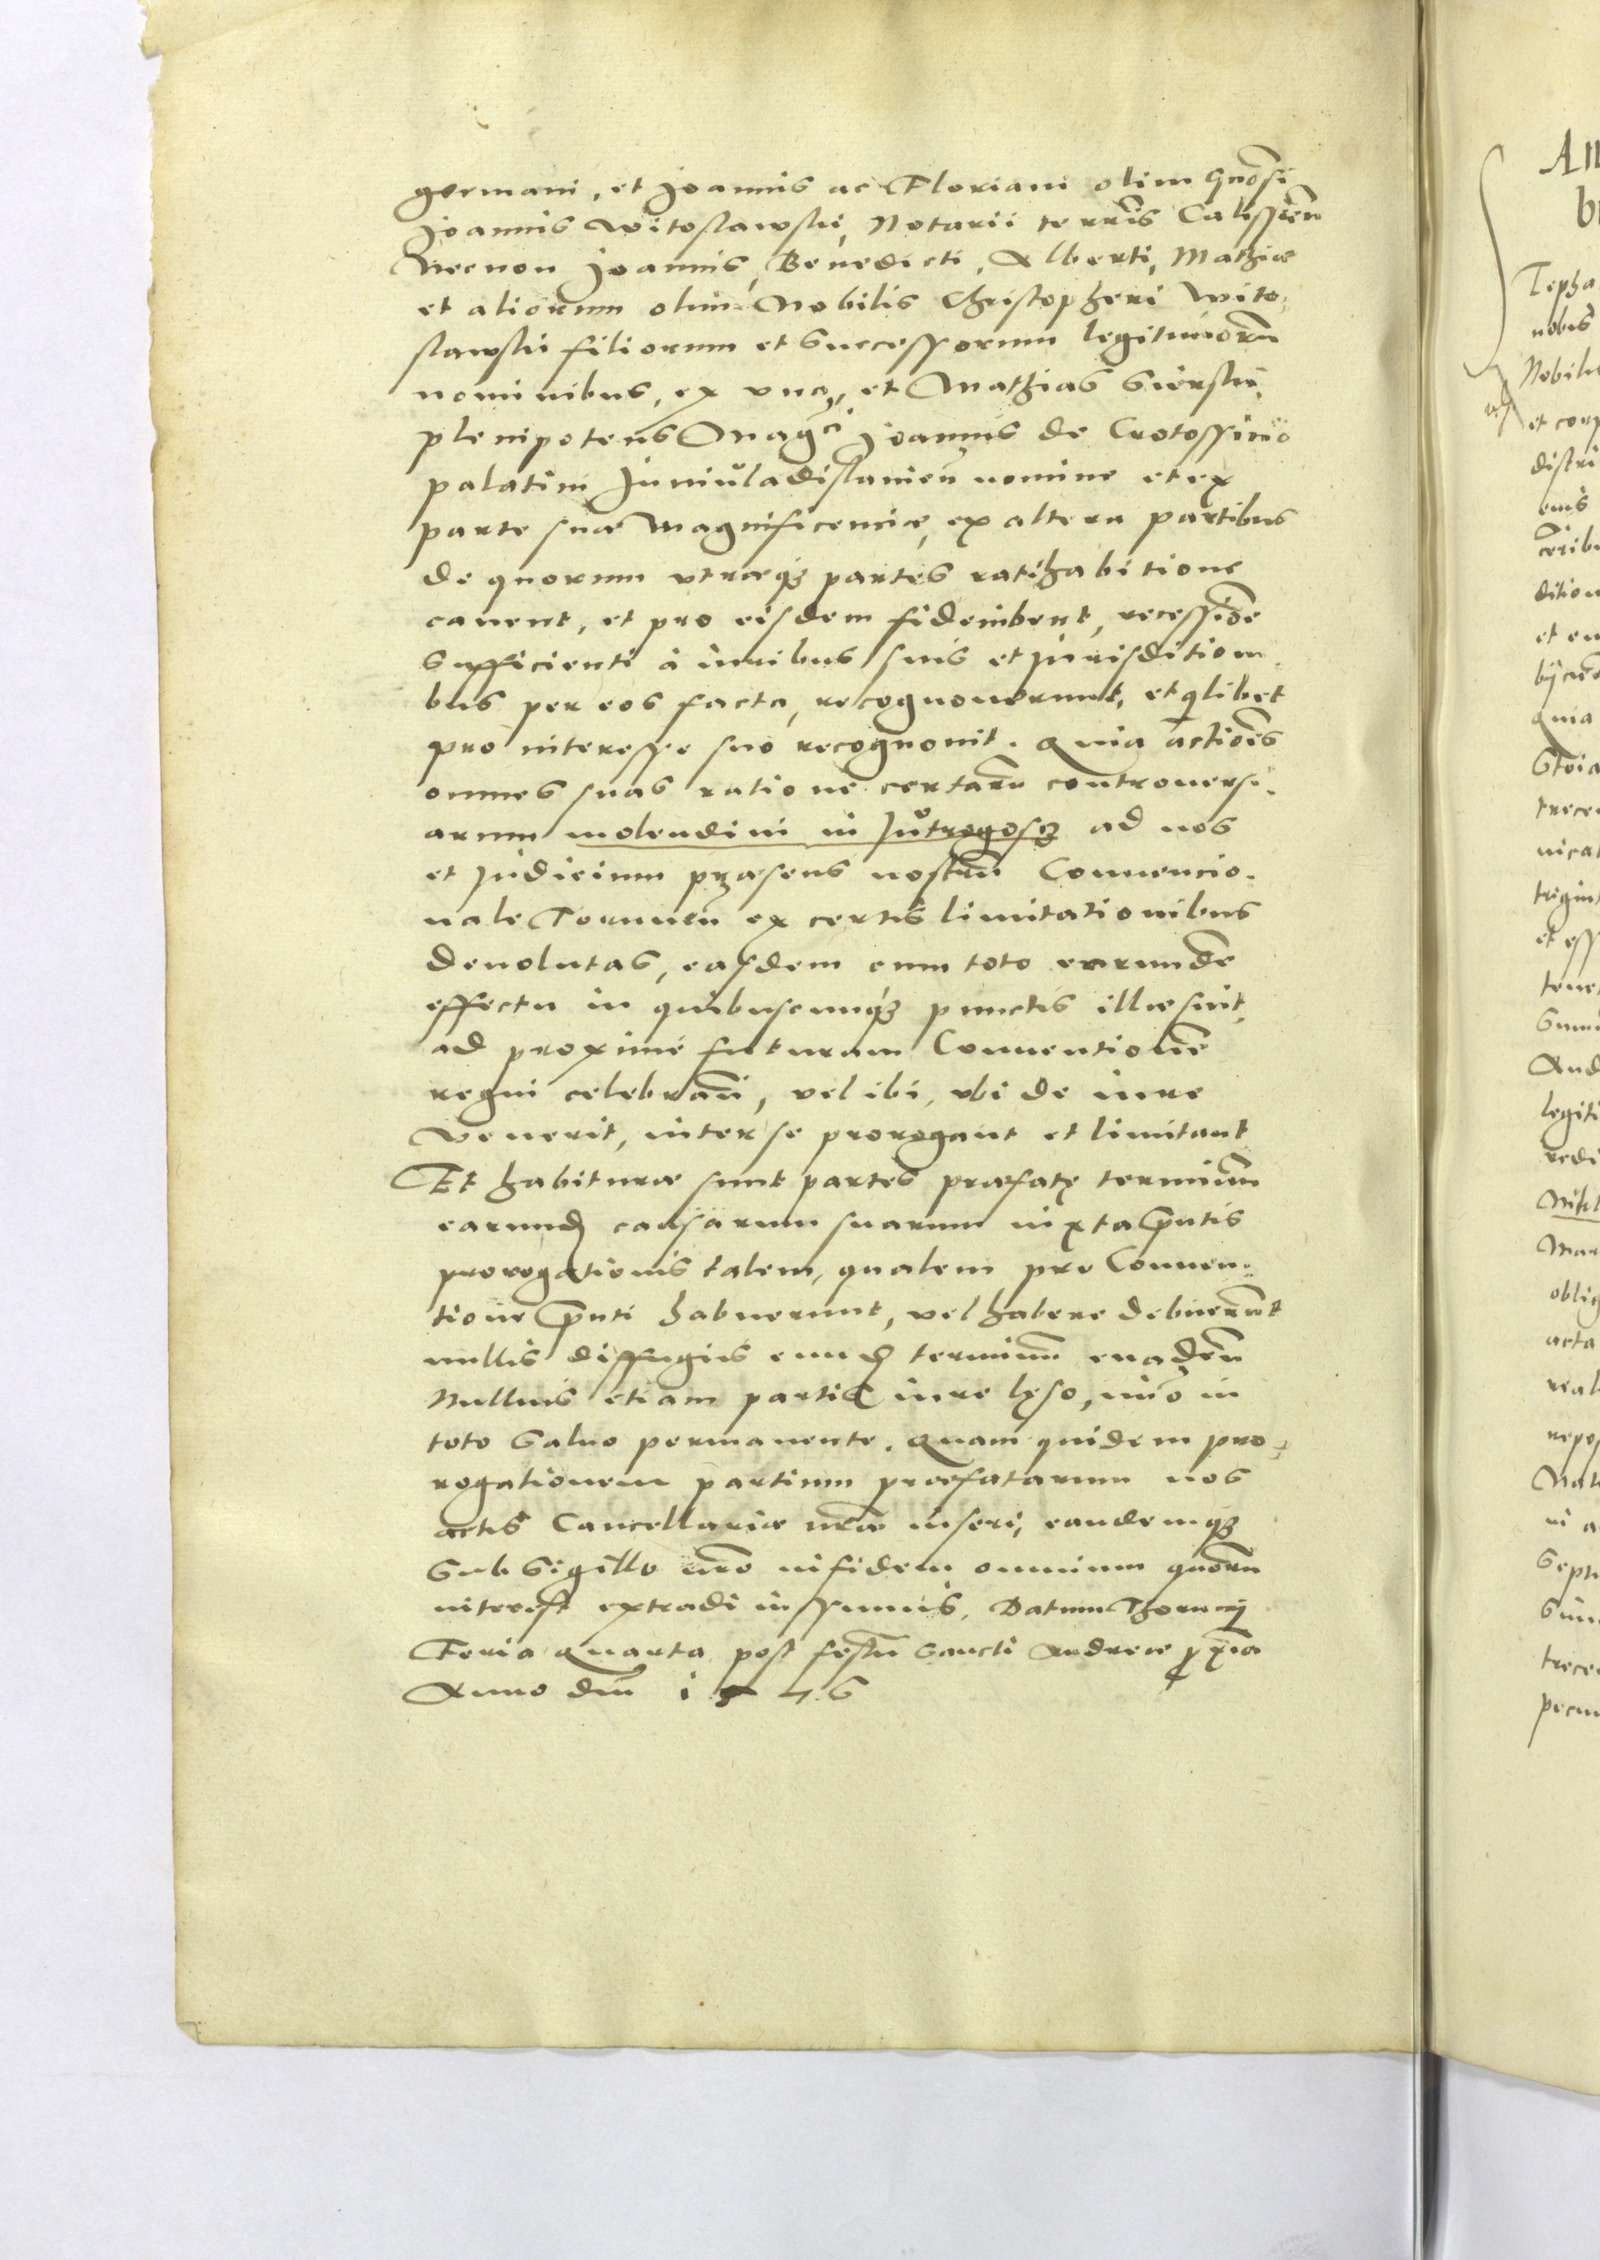 germani, et Joannis ac Floriani olim Gnosi
Joannis Witoslawski, Notarii terris Calissien
Necnon Joannis, Benedicti, Alberti, Mathiæ
et aliorum olim Nobilis Christopheri Wito
slawski filiorum et Successorum legitimorũ
nominibus, ex una, et Mathias
plenipotens Magci Joannis de Crotossino
palatini Juniuladislauien nomine et ex
parte suæ Magnificenciæ, ex altera partibus
de quorum utræqꝫ partes ratihabitione
cauent, et pro eisdem fideiubent, recessiõe
sufficienti à iuribus suis et Jurisditioni
bus per eos facta, recognouerunt, et qlibet
pro interesse suo recognouit. Quia actiões
omnes suas ratione certarũ controuersi
arum molendini in Jutrogosz ad nos
et Judicium præsens nostrũ Conuencio
nale Torunen ex certis limitationibus
deuolutas, easdem cum toto earundẽ
effectu in quibuscunqꝫ punctis illæ sint,
ad proxime futuram Conuentionẽ
regni celebrañ, vel ibi, ubi de iure
venerit, inter se prorogant et limitant
Et habituræ sunt partes præfatę terminũ
earund causarum suarum iuxta pñtis
prorogationis talem, qualem pro Conuen
tione pñti habuerunt, vel habere debuerũt
nullis diffugiis eund terminũ euadeñ
Nullius etiam partis iure lęso, imo in
toto saluo permanente. Quam quidem pro
rogationem partium præfatarum nos
actis Cancellariæ nrae inseri, eandemqꝫ
sub Sigillo nrõ in fidem omnium quorũ
interest extradi iussimus. Datum Thorunij
Feria quarta post festũ Sancti Andreæ pxia
Anno dnĩ 1576